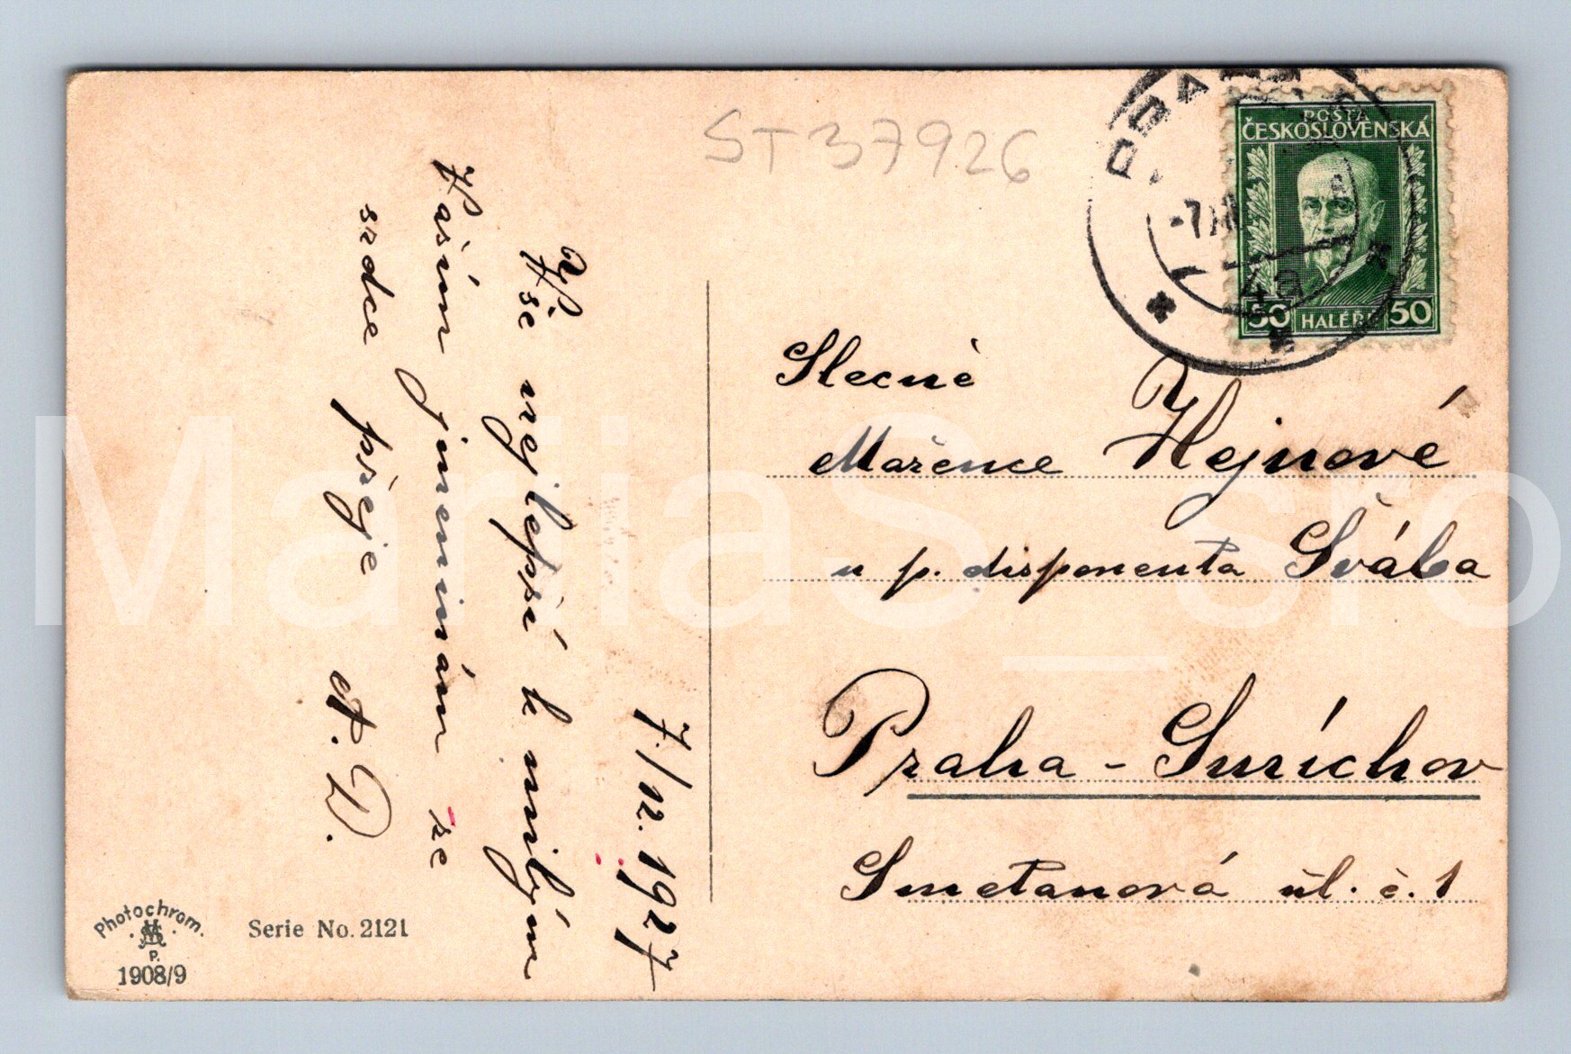 ST37926
POŠTA
ČESKOSLOVENSKÁ
50 HALÉŘŮ 50
PRAHA
-7.XII
4a
7./12.1927
Vše nejlepší k milým
Vašim jmeninám ze
srdce přeje A. D.
Slecně
Mařence Hejnové
u p. disponenta Švába
Praha - Smíchov
Smetanová úl. č. 1
Photochrom.
P.
1908/9
Serie No. 2121
MarijaS_sro